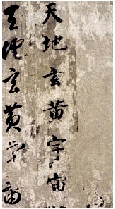 天地玄黃宇宙
天地玄黃宇宙